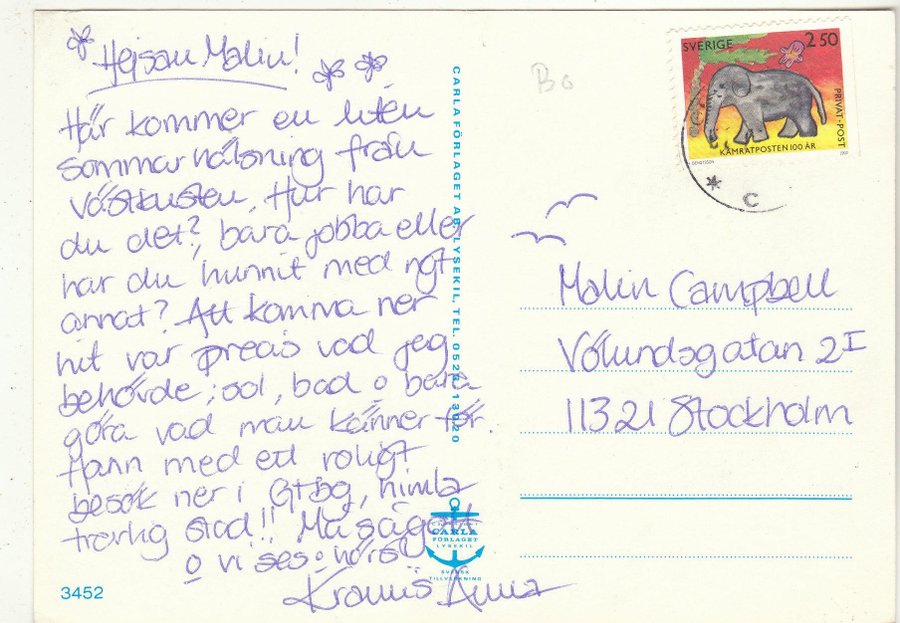 Hejsan Malin!
Här kommer en liten
sommarhälsning från
västkusten. Hur har
du det?, bara jobba eller
har du hunnit med ngt
annat? Att komma ner
hit var precis vad jag
behövde; sol, bad o bara
göra vad man känner för.
Hann med ett roligt
besök ner i Gtbg, himla
trevlig stad!! Ma så gott
o vi ses o hörs
Kramis Anna
3452
CARLA FÖRLAGET AB, LYSEKIL, TEL. 0523-130 20
CARLA
FÖRLAGET
LYSEKIL
SVENSK
TILLVERKNING
Bo
SVERIGE 2 50
PRIVAT-POST
KAMRATPOSTEN 100 ÅR
C
Malin Campbell
Völundsgatan 2 I
113 21 Stockholm